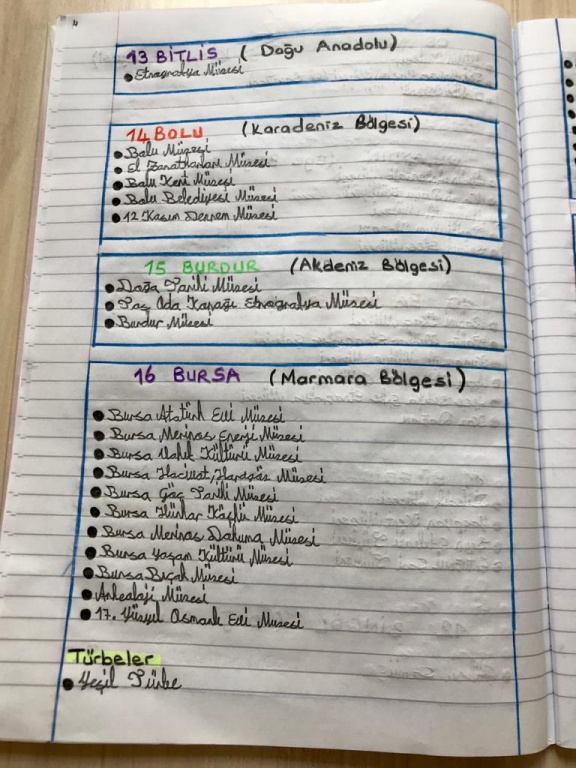 13 BİTLİS (Doğu Anadolu)
• Etnografya Müzesi
14 BOLU (Karadeniz Bölgesi)
• Bolu Müzesi
• El Zanatkarları Müzesi
• Bolu Kent Müzesi
• Bolu Belediyesi Müzesi
• 12 Kasım Deprem Müzesi
15 BURDUR (Akdeniz Bölgesi)
• Doğa Tarihi Müzesi
• Taş Oda Konağı Etnografya Müzesi
• Burdur Müzesi
16 BURSA (Marmara Bölgesi)
• Bursa Atatürk Evi Müzesi
• Bursa Merinos Enerji Müzesi
• Bursa Vakıf Kültürü Müzesi
• Bursa Hacivat, Karagöz Müzesi
• Bursa Göç Tarihi Müzesi
• Bursa Hünkar Köşkü Müzesi
• Bursa Merinos Dokuma Müzesi
• Bursa Yaşam Kültürü Müzesi
• Bursa Bıçak Müzesi
• Arkeoloji Müzesi
• 17. Yüzyıl Osmanlı Evi Müzesi
Türbeler
• Yeşil Türbe